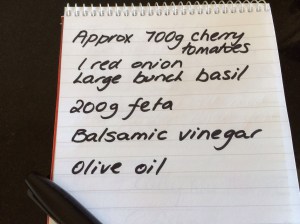 Approx 700g cherry
tomatoes
1 red onion
Large bunch basil
200g feta
Balsamic vinegar
Olive oil